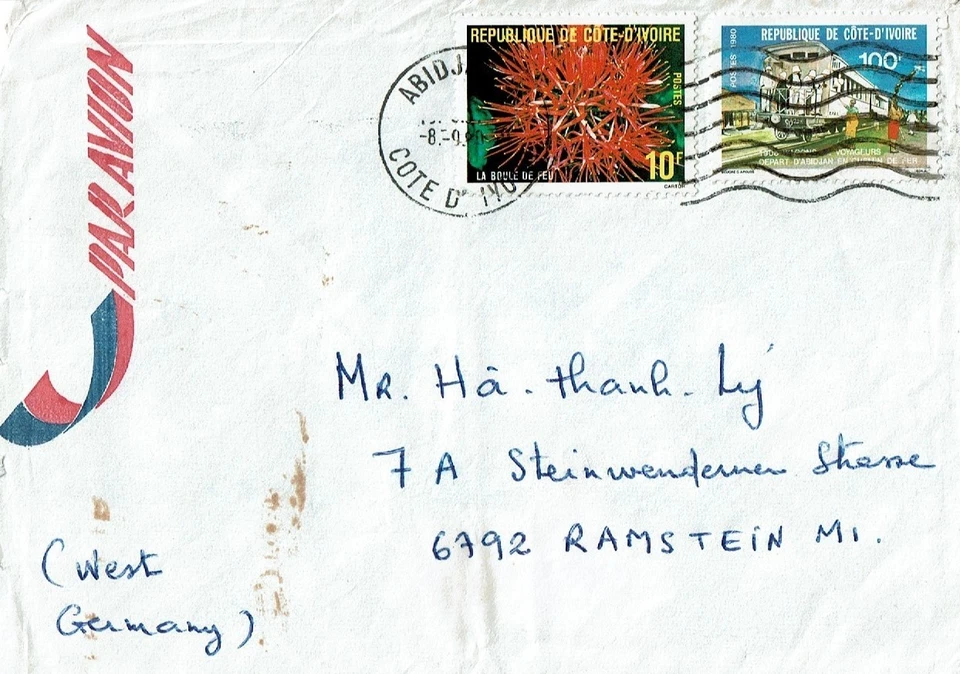 PAR AVION
REPUBLIQUE DE CÔTE-D'IVOIRE
POSTES
10F
LA BOULE DE FEU
CARTOR
REPUBLIQUE DE CÔTE-D'IVOIRE
POSTES 1980
100F
VOYAGEURS
DEPART D'ABIDJAN EN CHEMIN DE FER
ABIDJ
-8.-9.
COTE D'IVO
MR. Hà-thanh-Lý
7 A Steinwenderner Strasse
6792 RAMSTEIN MI.
(West
Germany)